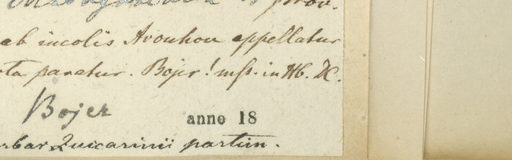 prov.
ab incolis Avouhou appellatur
ota paratur. Bojer! mss. in Hb. DC.
Bojer
anno 18
partim.